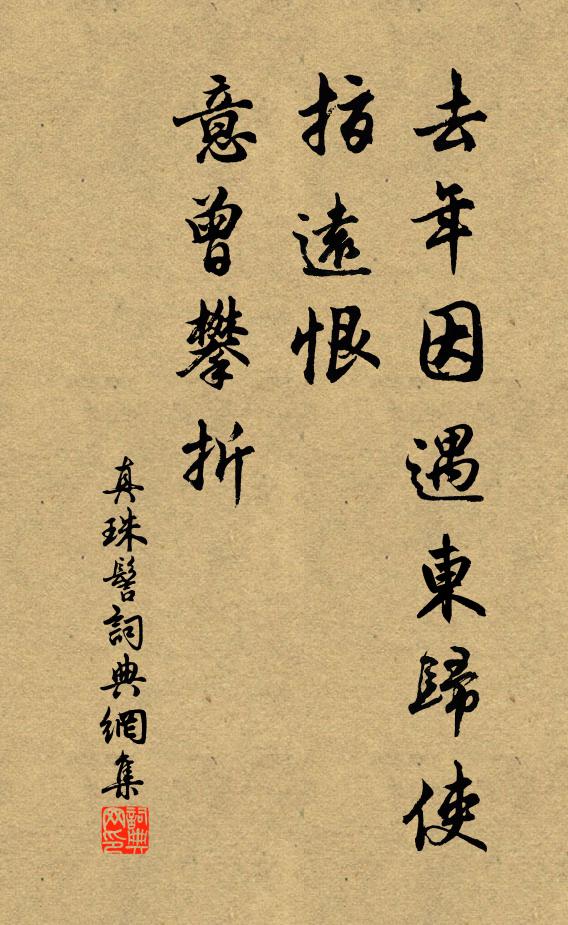 去年因遇東歸使
指遠恨
意曾攀折
真珠髻詞典網集
詞典網印